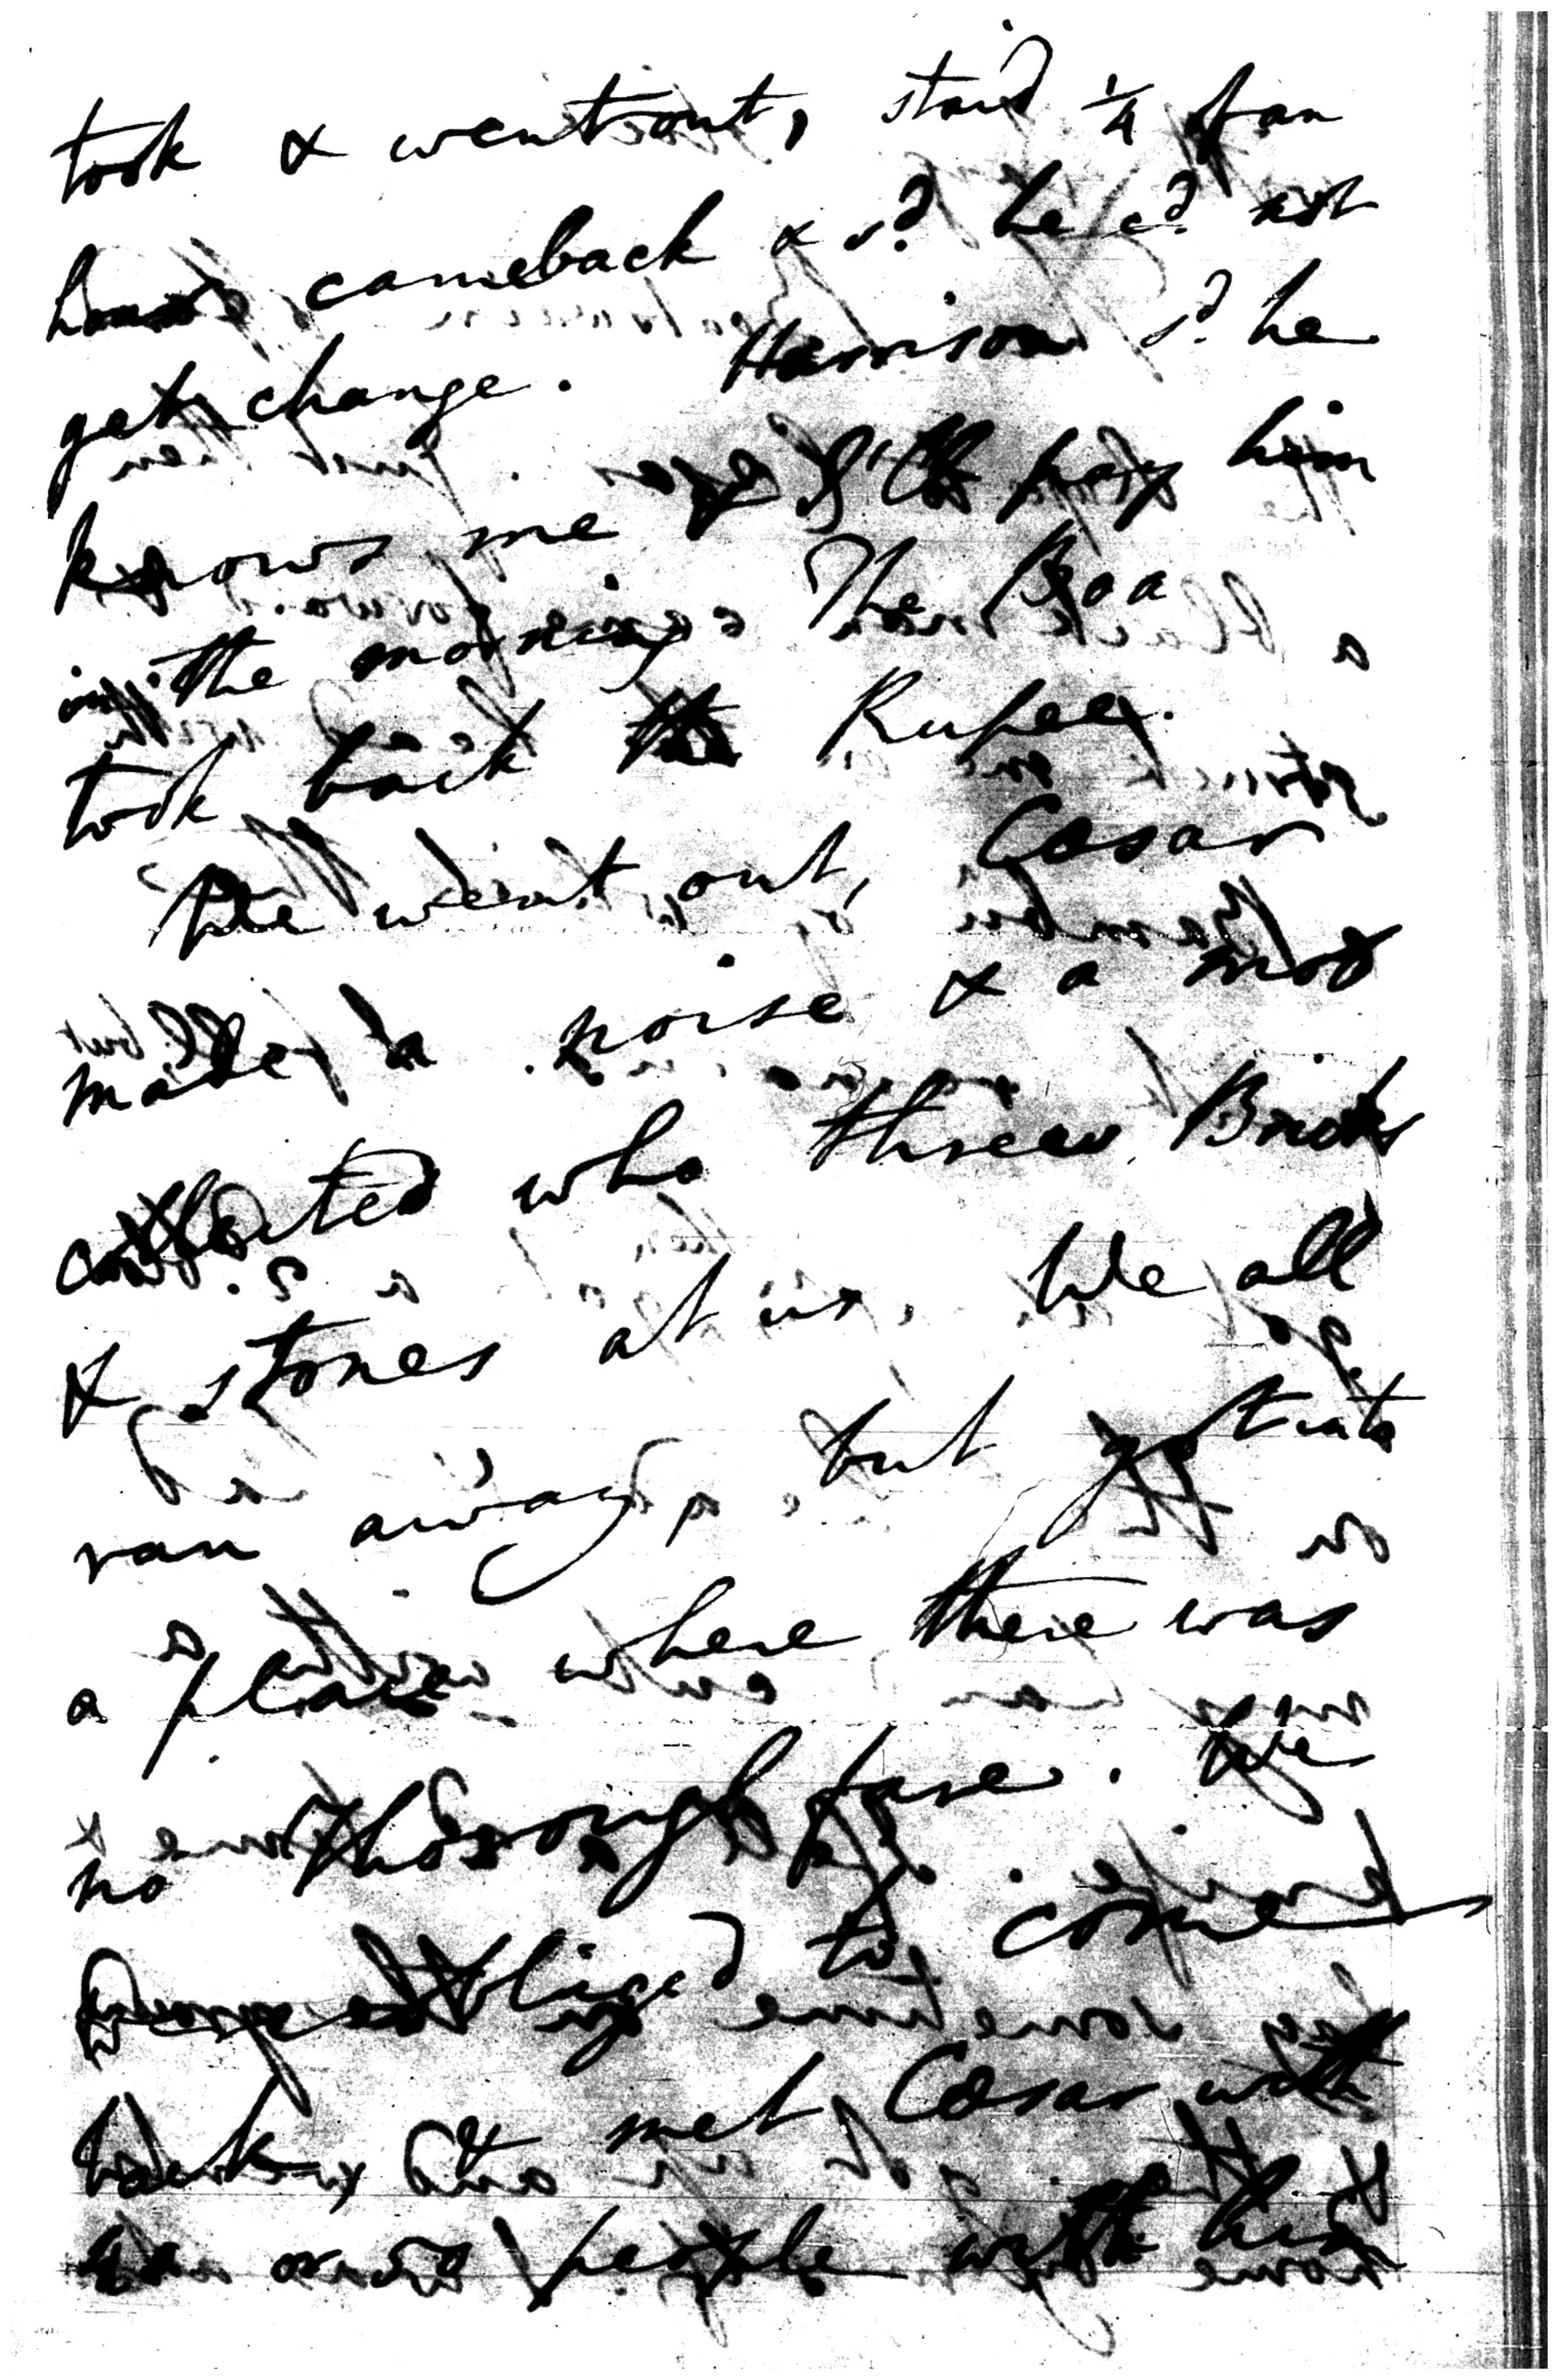 took & went out, staid ¼ of an
hour came back & sd. he cd. not
get change. Harrison sd. he
knows me & I'll pay him
in the morning. The Boa
took back the Rupee.
We went out, Cæsar
made a noise & a mob
collected who threw Bricks
& stones at us. We all
ran away, but got into
a place where there was
no thoroughfare. We
were obliged to come
back & met Cæsar with
more people with him